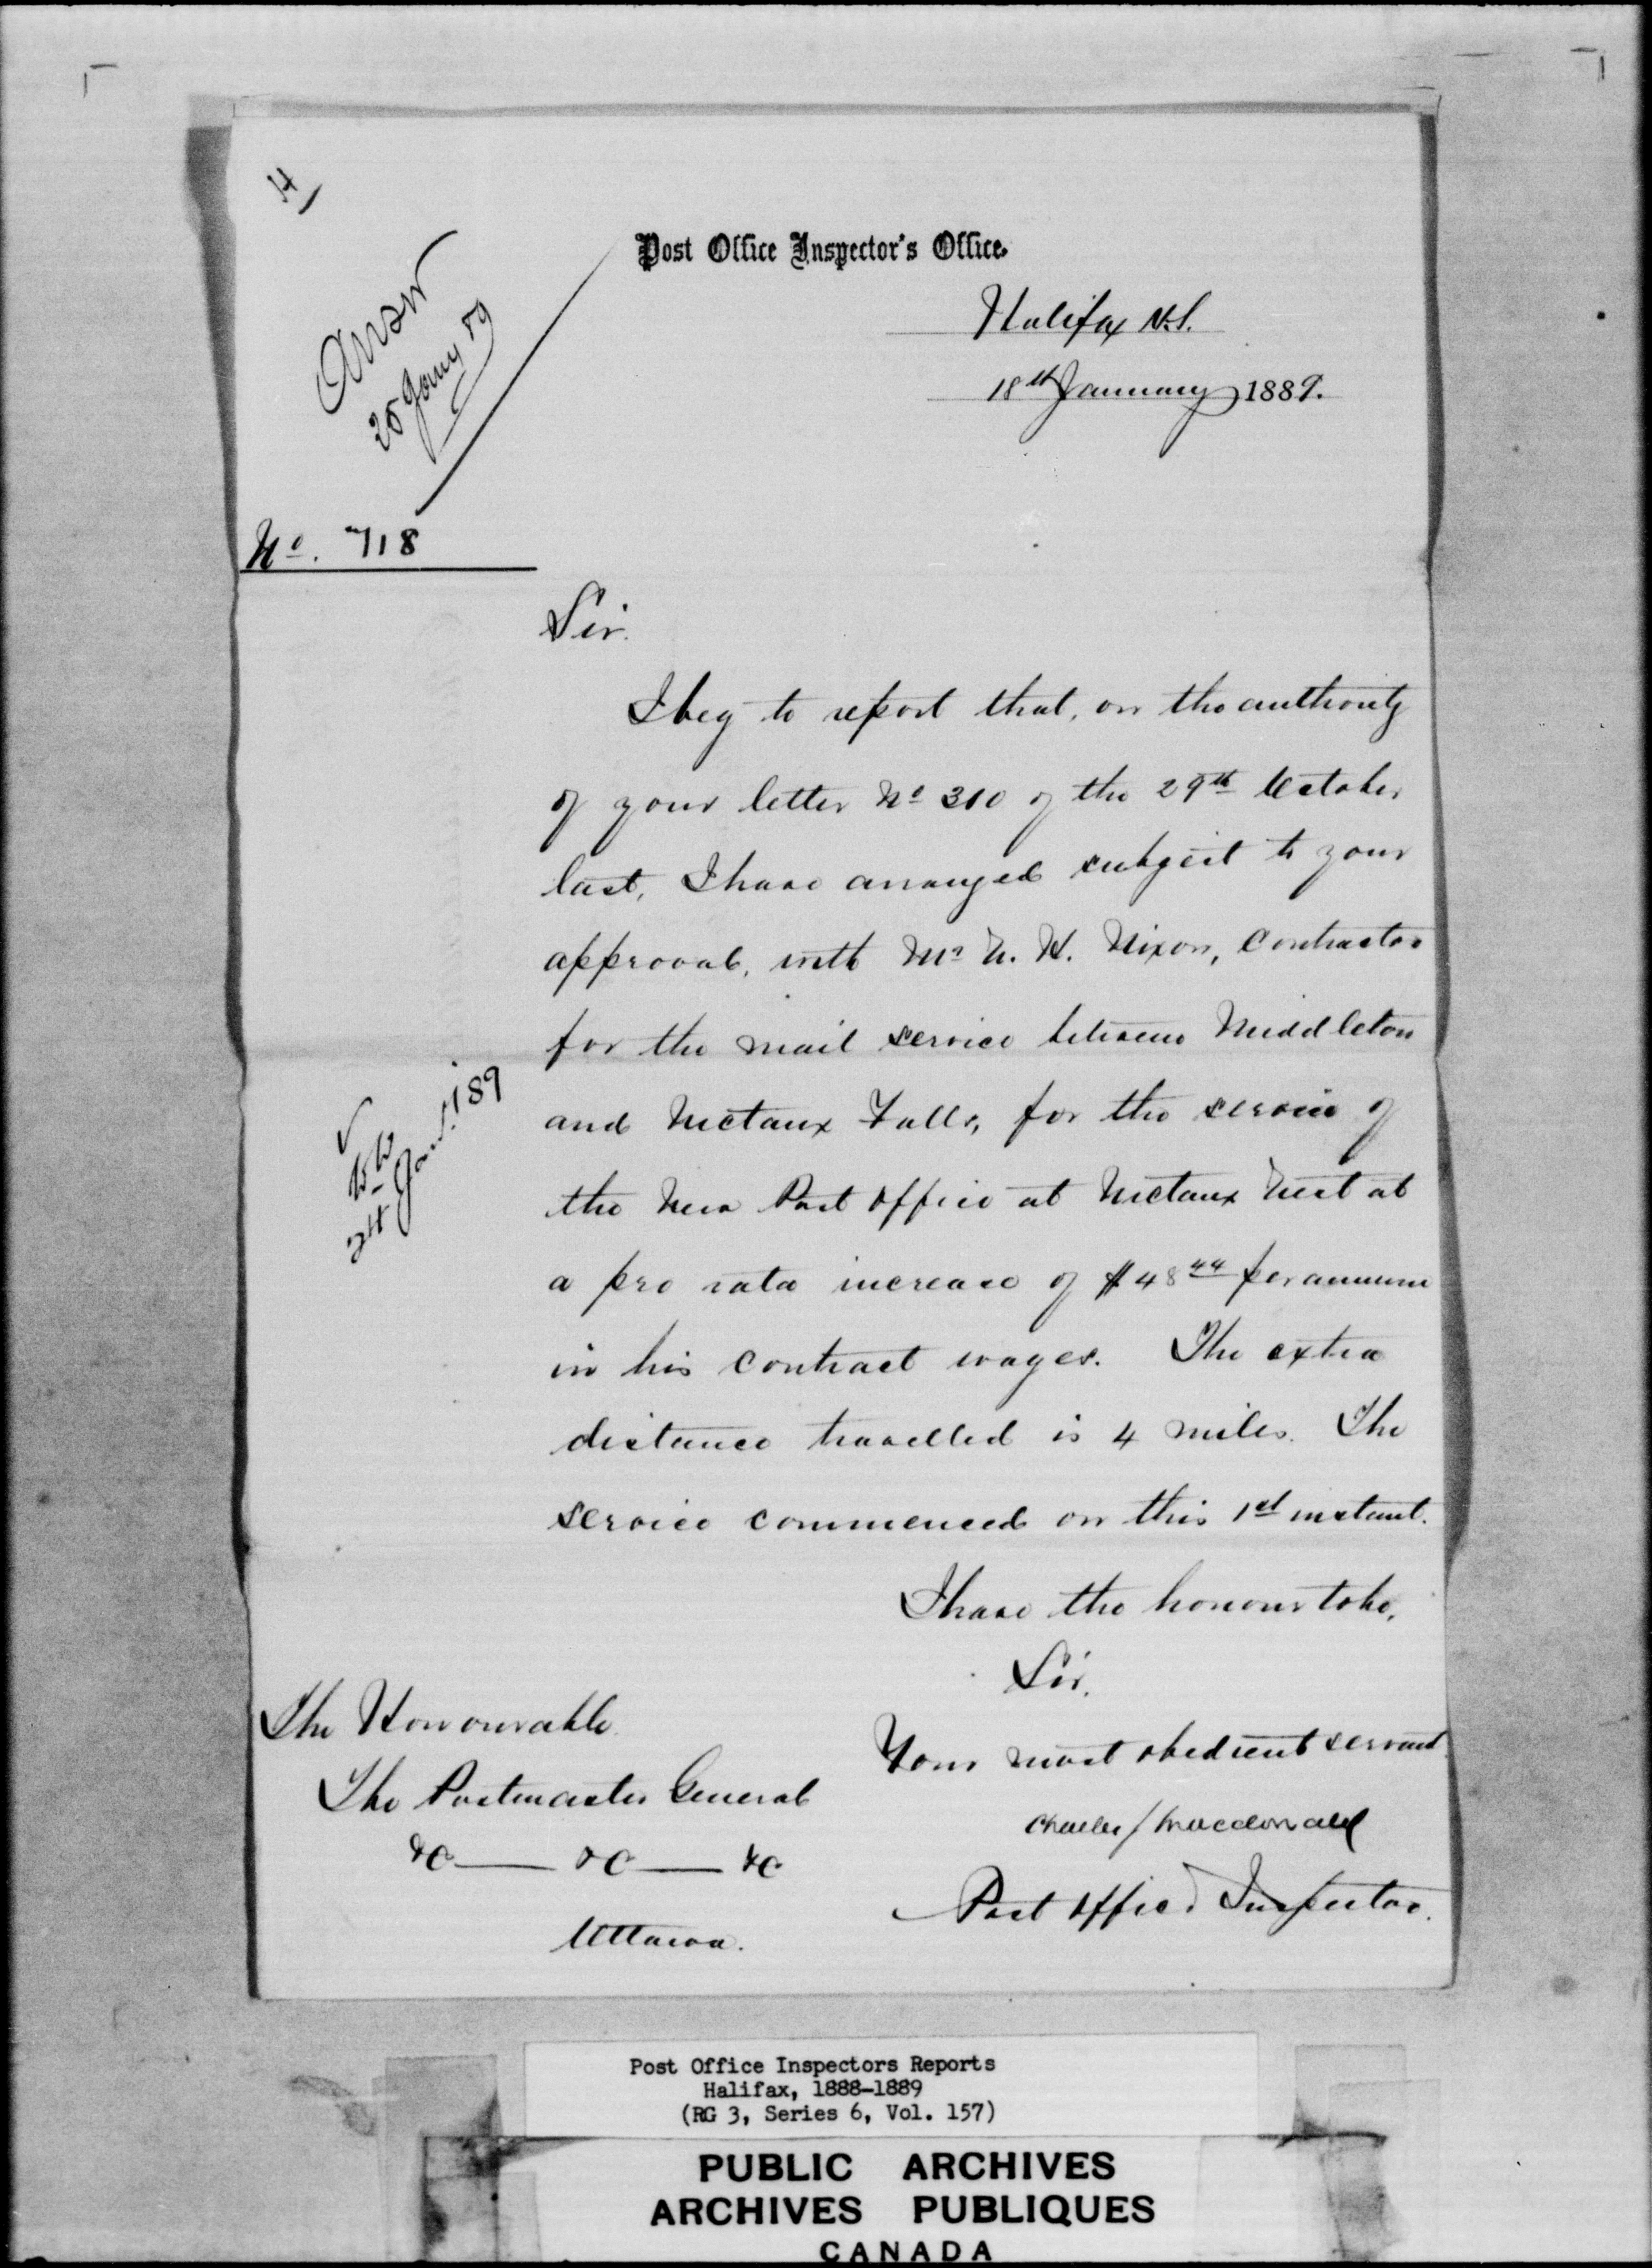 H
Post Office Inspector's Office.
Answd
25 Jany 89
Halifax N.S.
18th January 1889.
No. 718
Sir.
I beg to report that, on the authority
of your letter No 310 of the 29th October
last, I have arranged subject to your
approval, with Mr N. H. Nixon, Contractor
for the mail service between Middleton
and Nictaux Falls, for the service of
the New Post Office at Nictaux West at
a pro rata increase of $48 44 per annum
in his contract wages. The extra
distance travelled is 4 miles. The
service commenced on this 1st instant.
24 Jan. 189
I have the honour to be,
Sir.
Your most obedient servant
Charles J Macdonald
Post Office Inspector.
The Honourable
The Postmaster General
&c — &c — &c
Ottawa.
Post Office Inspectors Reports
Halifax, 1888-1889
(RG 3, Series 6, Vol. 157)
PUBLIC ARCHIVES
ARCHIVES PUBLIQUES
CANADA